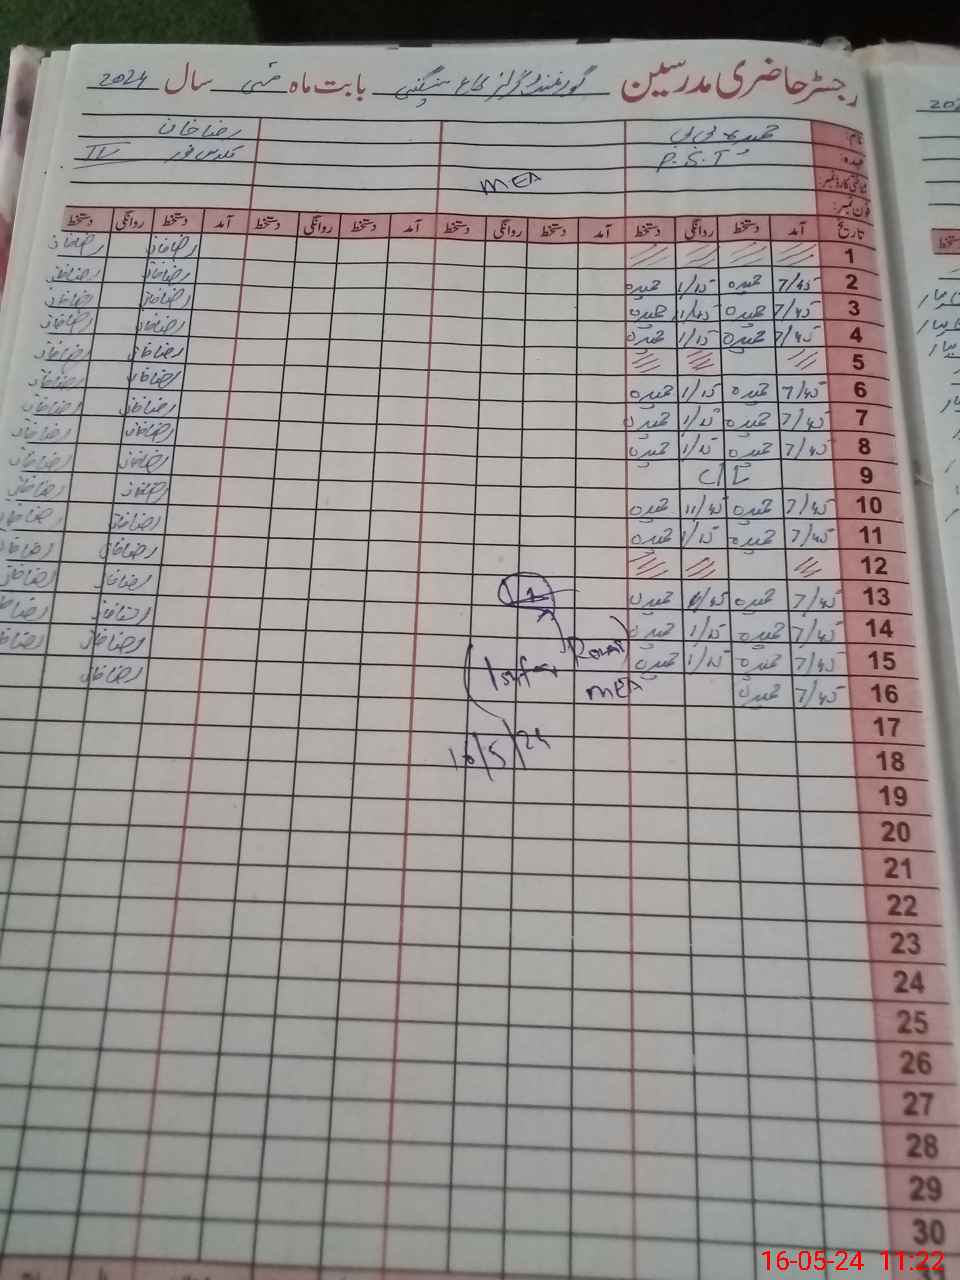 رجسٹر حاضری مدرسین گورنمنٹ گرلز بابت ماہ مئی سال 2024
نام: حمیدہ بی بی رضا خان
عہدہ: P.S.T کلاس فور IV
شناختی کارڈ نمبر: MEA
فون نمبر:
تاریخ آمد دستخط روانگی دستخط آمد دستخط روانگی دستخط آمد دستخط روانگی دستخط آمد دستخط روانگی دستخط
1 رضا خان رضا خان
2 7/45 حمیدہ 1/15 حمیدہ رضا خان رضا خان
3 7/45 حمیدہ حمیدہ رضا خان رضا خان
4 7/45 حمیدہ 1/15 حمیدہ رضا خان رضا خان
5 رضا خان رضا خان
6 7/45 حمیدہ 1/15 حمیدہ رضا خان رضا خان
7 7/45 حمیدہ 1/15 حمیدہ رضا خان رضا خان
8 7/45 حمیدہ 1/15 حمیدہ رضا خان رضا خان
9 C/L رضا خان رضا خان
10 7/45 حمیدہ 11/45 حمیدہ رضا خان رضا خان
11 7/45 حمیدہ 1/15 حمیدہ رضا خان رضا خان
12 رضا خان رضا خان
13 7/45 حمیدہ حمیدہ رضا خان رضا خان
14 7/45 حمیدہ 1/15 حمیدہ رضا خان رضا خان
15 7/45 حمیدہ 1/15 حمیدہ رضا خان رضا خان
16 7/45 حمیدہ رضا خان
1
MEA
16/5/24
17
18
19
20
21
22
23
24
25
26
27
28
29
30
16-05-24 11:22